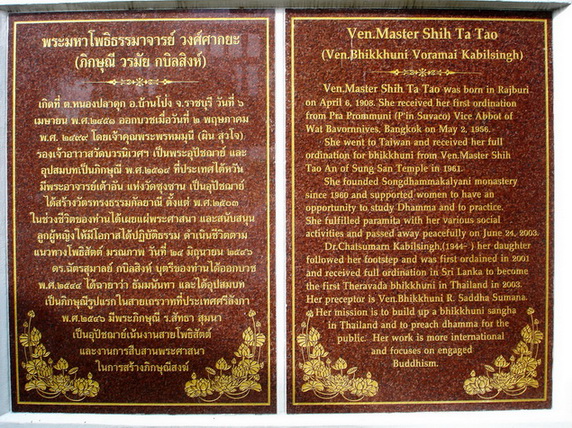 พระมหาโพธิธรรมาจารย์ วงศ์ศากยะ
(ภิกษุณี วรมัย กบิลสิงห์)
เกิดที่ ต.หนองปลาดุก อ.บ้านโป่ง จ.ราชบุรี วันที่ ๖
เมษายน พ.ศ.๒๔๕๑ ออกบวชเมื่อวันที่ ๒ พฤษภาคม
พ.ศ. ๒๔๙๙ โดยเจ้าคุณพระพรหมมุนี (ผิน สุวโจ)
รองเจ้าอาวาสวัดบวรนิเวศฯ เป็นพระอุปัชฌาย์ และ
อุปสมบทเป็นภิกษุณี พ.ศ.๒๕๑๔ ที่ประเทศไต้หวัน
มีพระอาจารย์เต้าอัน แห่งวัดซุงซาน เป็นอุปัชฌาย์
ได้สร้างวัตรทรงธรรมกัลยาณี ตั้งแต่ พ.ศ.๒๕๐๓
ในช่วงชีวิตของท่านได้เผยแผ่พระศาสนา และสนับสนุน
ลูกผู้หญิงให้มีโอกาสได้ปฏิบัติธรรม ดำเนินชีวิตตาม
แนวทางโพธิสัตต์ มรณภาพ วันที่ ๒๔ มิถุนายน ๒๕๔๖
ดร.ฉัตรสุมาลย์ กบิลสิงห์ บุตรีของท่านได้ออกบวช
พ.ศ.๒๕๔๔ ได้ฉายาว่า ธัมมนันทา และได้อุปสมบท
เป็นภิกษุณีรูปแรกในสายเถรวาทที่ประเทศศรีลังกา
พ.ศ.๒๕๔๖ มีพระภิกษุณี ร.สัทธา สุมนา
เป็นอุปัชฌาย์เน้นงานสายโพธิสัตต์
และงานการสืบสานพระศาสนา
ในการสร้างภิกษุณีสงฆ์
Ven.Master Shih Ta Tao
(Ven.Bhikkhuni Voramai Kabilsingh)
Ven.Master Shih Ta Tao was born in Rajburi
on April 6, 1908. She received her first ordination
from Pra Prommuni (P'in Suvaco) Vice Abbot of
Wat Bavornnives, Bangkok on May 2, 1956.
She went to Taiwan and received her full
ordination for bhikkhuni from Ven.Master Shih
Tao An of Sung San Temple in 1961.
She founded Songdhammakalyani monastery
since 1960 and supported women to have an
opportunity to study Dhamma and to practice.
She fulfilled paramita with her various social
activities and passed away peacefully on June 24, 2003.
Dr.Chatsumarn Kabilsingh,(1944- ) her daughter
followed her footstep and was first ordained in 2001
and received full ordination in Sri Lanka to become
the first Theravada bhikkhuni in Thailand in 2003.
Her preceptor is Ven.Bhikkhuni R. Saddha Sumana.
Her mission is to build up a bhikkhuni sangha
in Thailand and to preach dhamma for the
public. Her work is more international
and focuses on engaged
Buddhism.